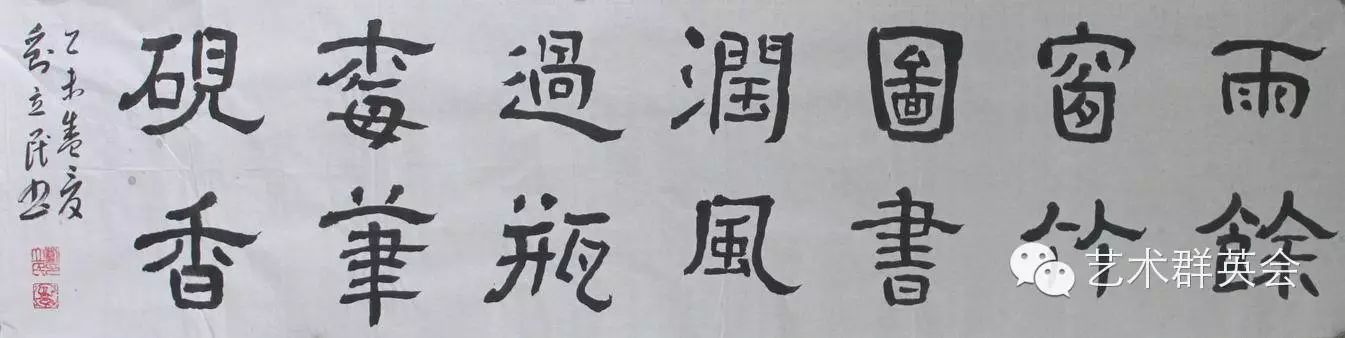 雨餘
窗竹
圖書
潤風
過瓶
梅筆
硯香
乙未盛夏
劉立民書
艺术群英会